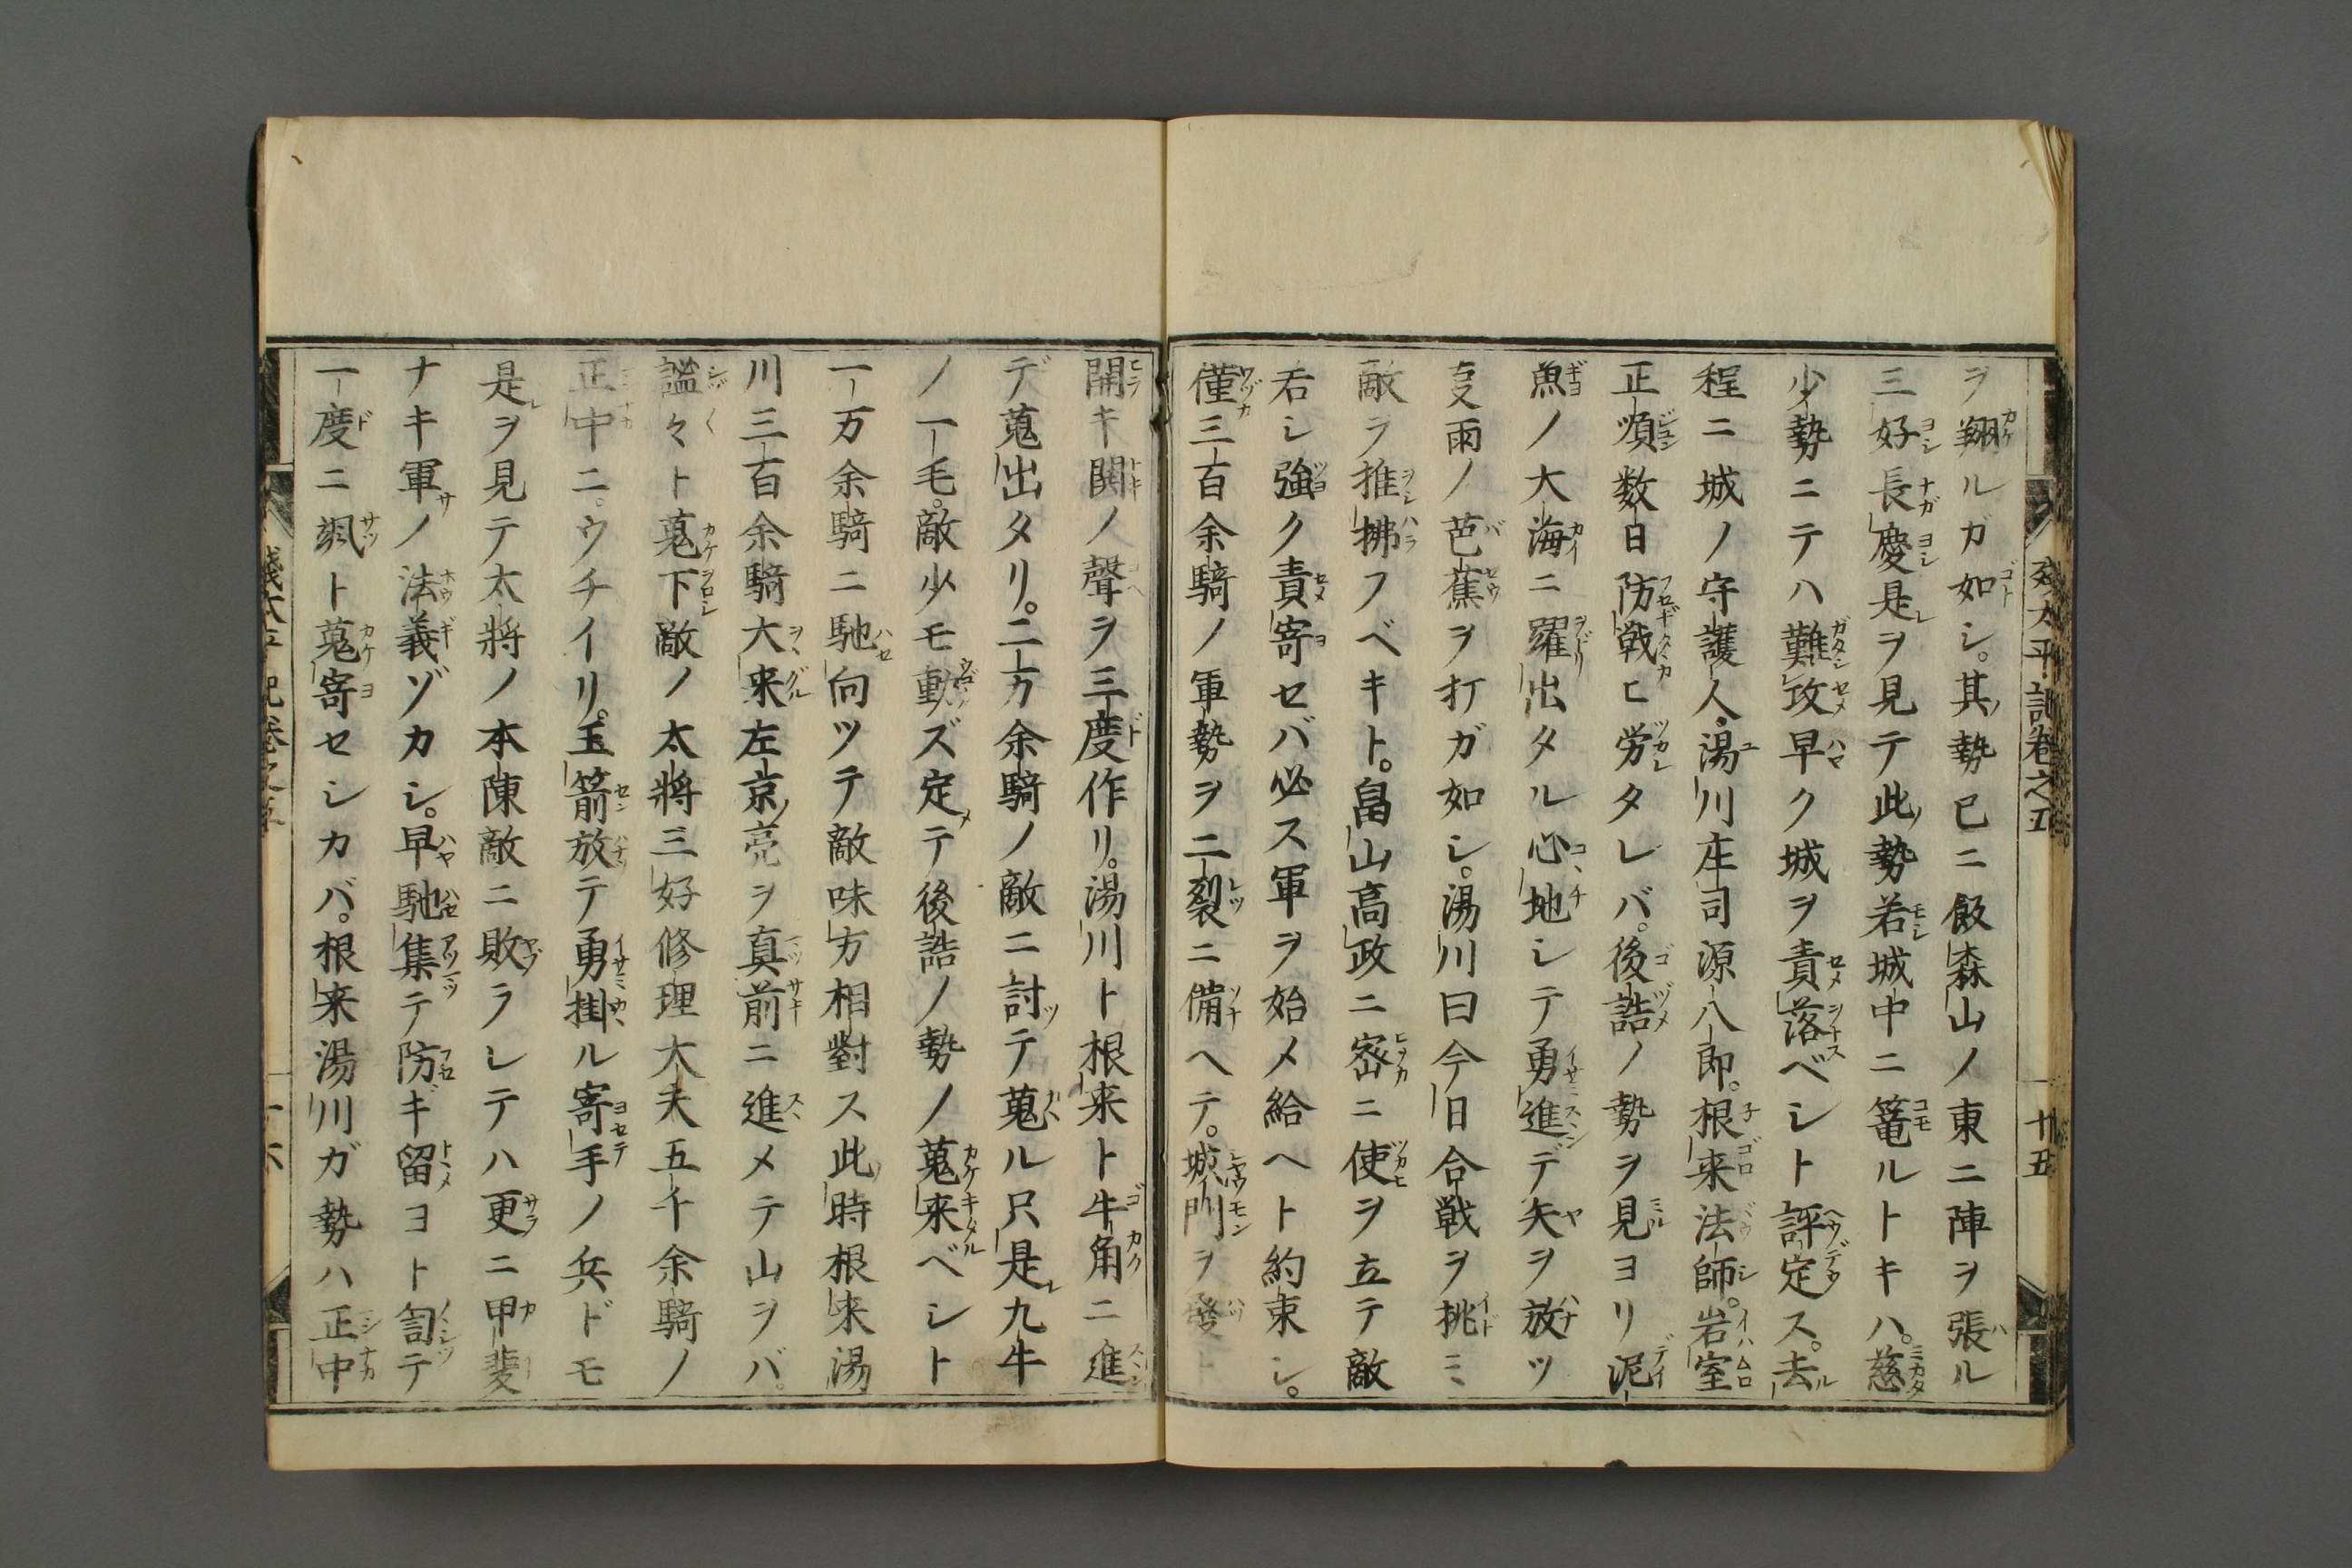 ヲ翔ルガ如シ。其勢已ニ飯森山ノ東ニ陣ヲ張ル
三好長慶是ヲ見テ此勢若城中ニ篭ルトキハ。慈
少勢ニテハ難攻早ク城ヲ責落ベシト評定ス。去
程ニ城ノ守護人湯川庄司源八郎。根来法師。岩室
正順数日防戦ヒ労タレバ。後詰ノ勢ヲ見ヨリ泥
魚ノ大海ニ躍出タル心地シテ勇進デ矢ヲ放ツ
夏雨ノ芭蕉ヲ打ガ如シ。湯川曰今日合戦ヲ挑ミ
敵ヲ推拂フベキト。畠山高政ニ密ニ使ヲ立テ敵
若シ強ク責寄セバ必ス軍ヲ始メ給ヘト約束シ。
僅三百余騎ノ軍勢ヲ二裂ニ備ヘテ。城門ヲ發ト
開キ鬨ノ聲ヲ三度作リ。湯川ト根来ト牛角ニ進
デ蒐出タリ。二万余騎ノ敵ニ討テ蒐ル只是九牛
ノ一毛。敵少モ動ズ定テ後詰ノ勢ノ蒐来ベシト
一万余騎ニ馳向ツテ敵味方相對ス此時根来湯
川三百余騎大来左京亮ヲ真前ニ進メテ山ヲバ。
謐々ト蒐下敵ノ太将三好修理大夫五千余騎ノ
正中ニ。ウチイリ。玉箭放テ勇掛ル寄手ノ兵ドモ
是ヲ見テ太将ノ本陳敵ニ敗ラレテハ更ニ甲斐
ナキ軍ノ法義ゾカシ。早馳集テ防ギ留ヨト訇テ
一度ニ颯ト蒐寄セシカバ。根来湯川ガ勢ハ正中
太平記巻之五
十五
十六